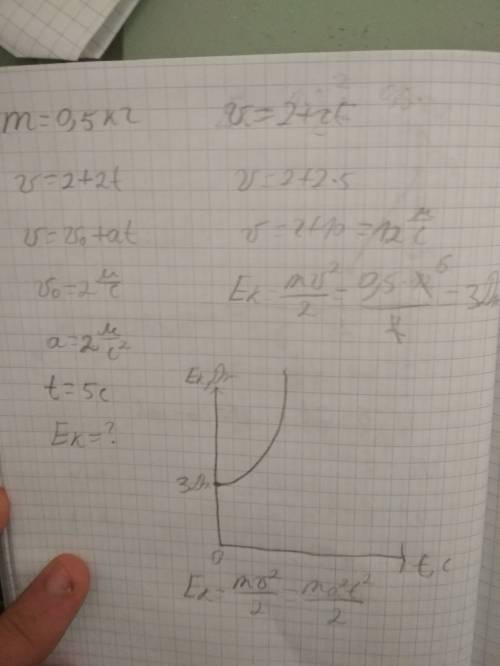 m=0,5кг
v=2+2t
v=v₀+at
v₀=2 м/с
a=2 м/с²
t=5с
Eк=?
v=2+2t
v=2+2·5
v=2+10=12 м/с
Eк=mv²/2=0,5·12/2=3Дж
Eк, Дж
3Дж
0
t, с
Eк=mv²/2=ma²t²/2